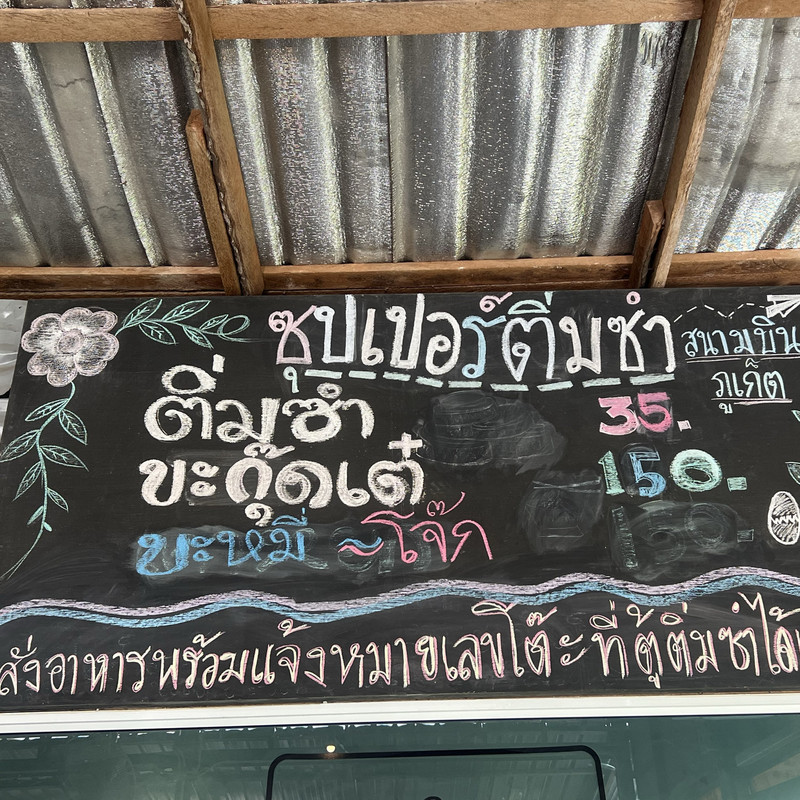 ซุปเปอร์ติ่มซำ สนามบิน
ภูเก็ต
ติ่มซำ 35.
บะกุ๊ดเต๋ 150.
บะหมี่ ~ โจ๊ก
สั่งอาหารพร้อมแจ้งหมายเลขโต๊ะที่ตู้ติ่มซำได้